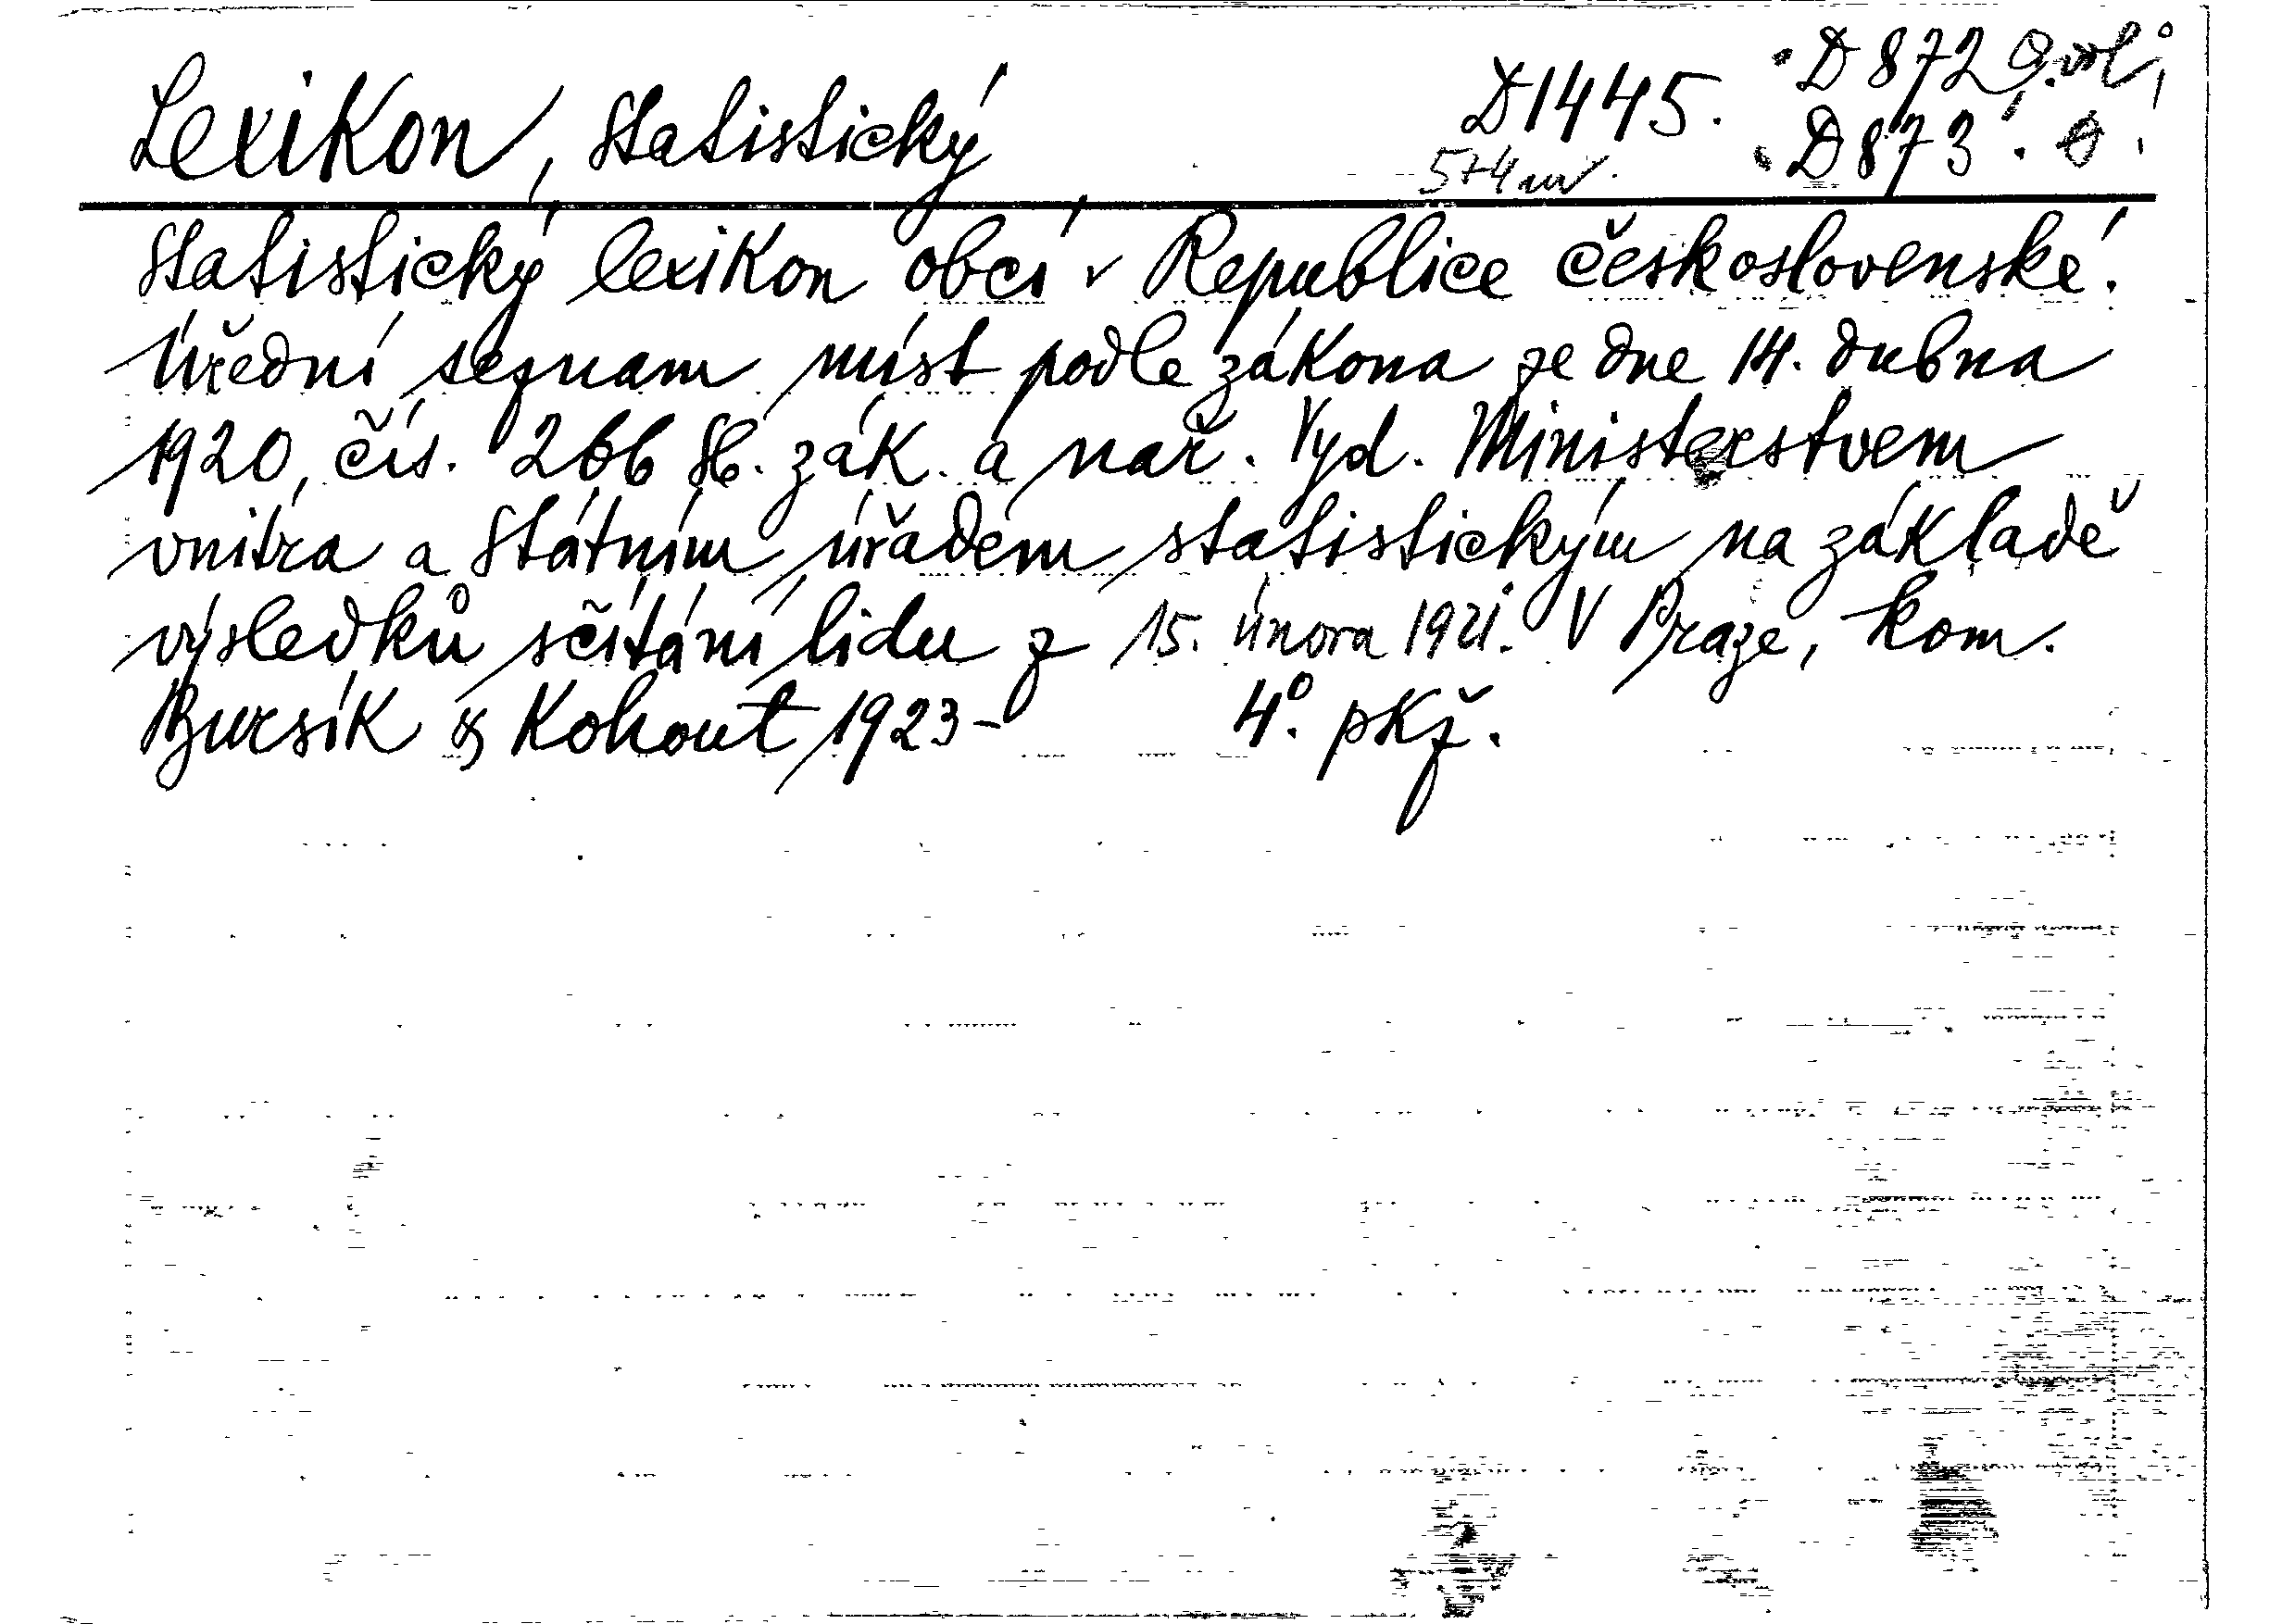 Lexikon, statistický
D1445. D872
D873.
Statistický lexikon obcí v Republice československé.
Úřední seznam míst podle zákona ze dne 14. dubna
1920, čís. 266 Sb. zák. a nař. Vyd. Ministerstvem
vnitra a Státním úřadem statistickým na základě
výsledků sčítání lidu z 15. února 1921. V Praze, kom.
Bursík & Kohout 1923- 4°. pKž.